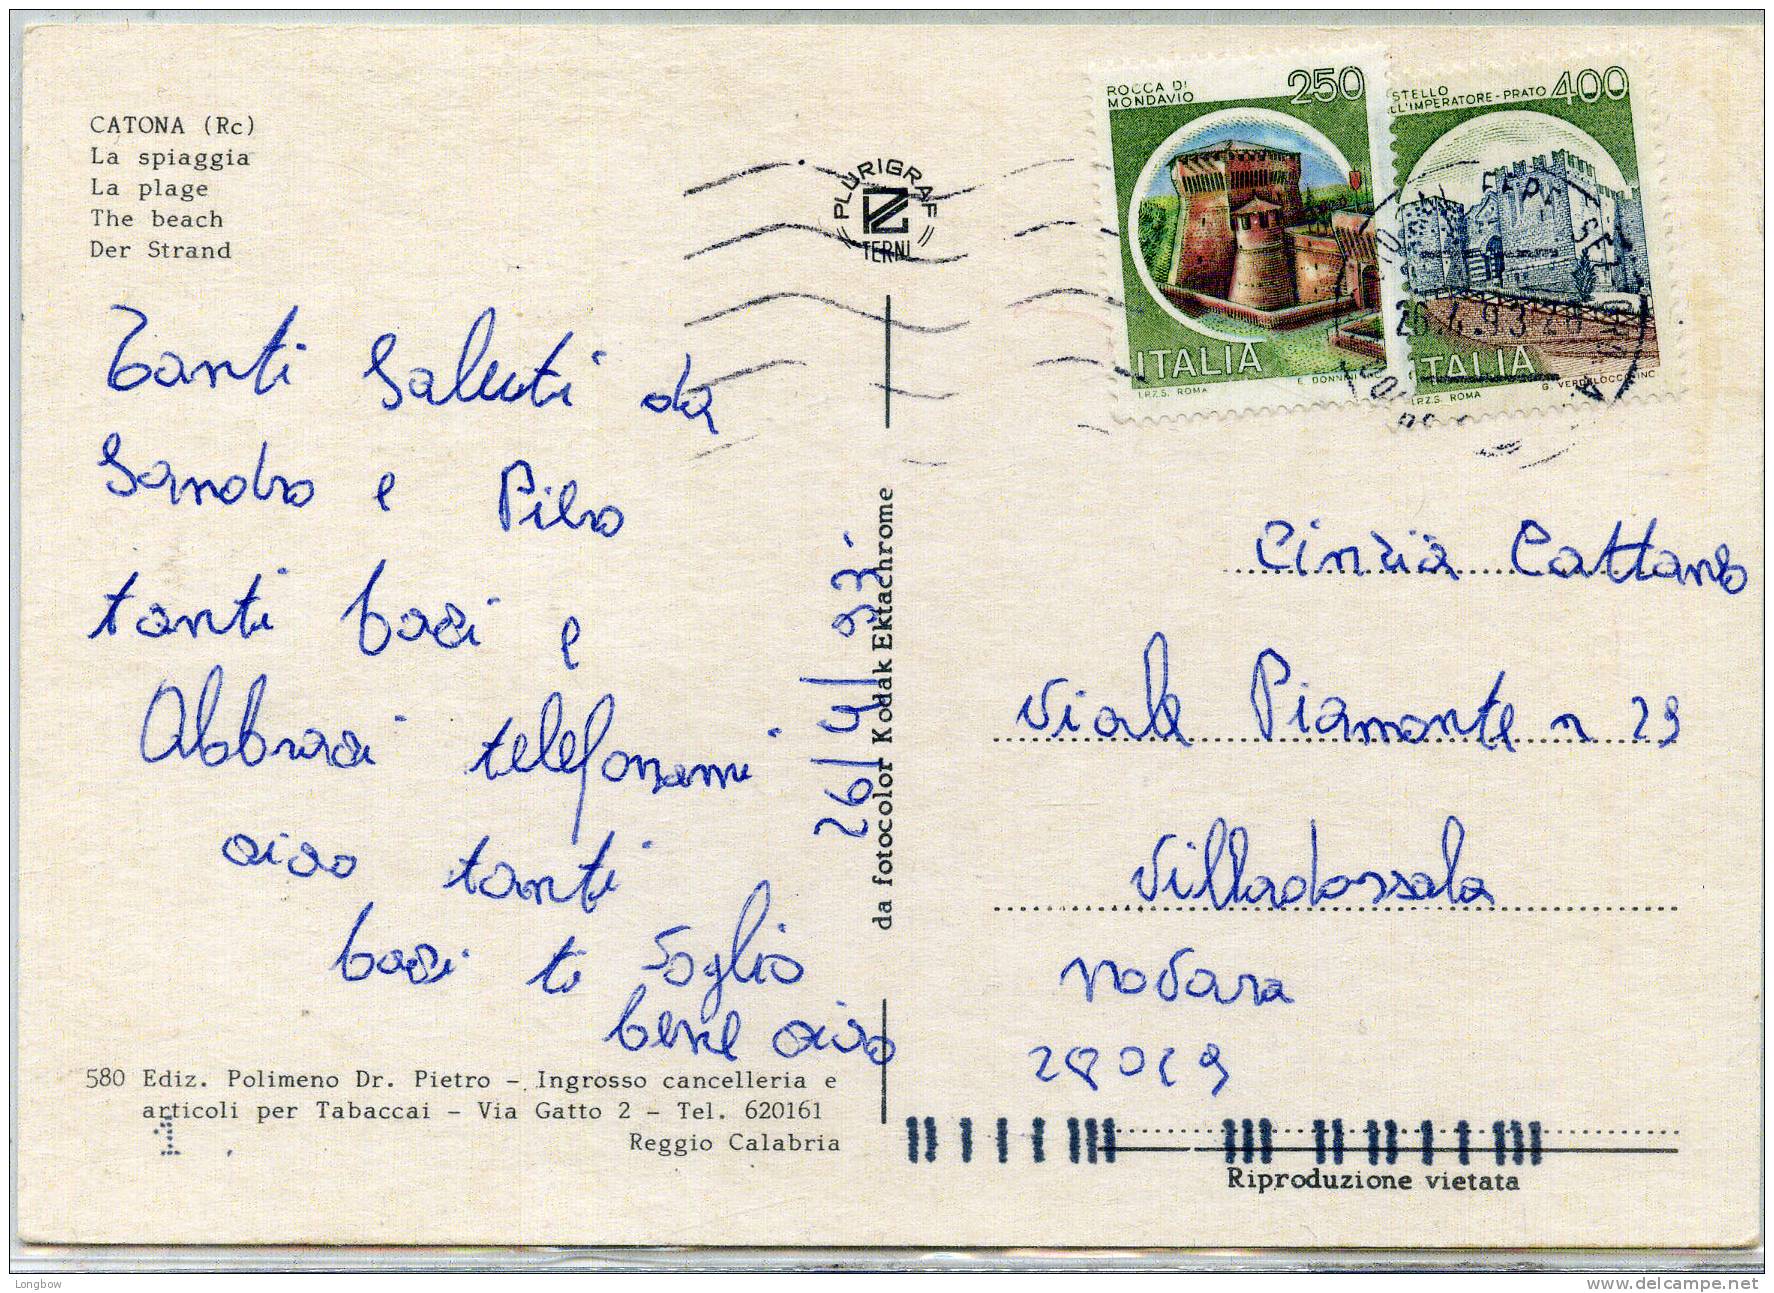 CATONA (Rc)
La spiaggia
La plage
The beach
Der Strand
PLURIGRAF
TERNI
ROCCA DI
MONDAVIO
250
ITALIA
I.P.Z.S. ROMA
STELLO
L'IMPERATORE-PRATO
400
TALIA
I.P.Z.S. ROMA
26.4.93
Tanti Saluti da
Sandro e Piero
tanti baci e
Abbraci telefonami
ciao tanti
baci ti voglio
bene ciao
26/4/93
da fotocolor Kodak Ektachrome
Cinzia Cattano
Viale Piamonte n 29
Villadossala
novara
28029
580 Ediz. Polimeno Dr. Pietro - Ingrosso cancelleria e
articoli per Tabaccai - Via Gatto 2 - Tel. 620161
Reggio Calabria
1
Riproduzione vietata
Longbow
www.delcampe.net